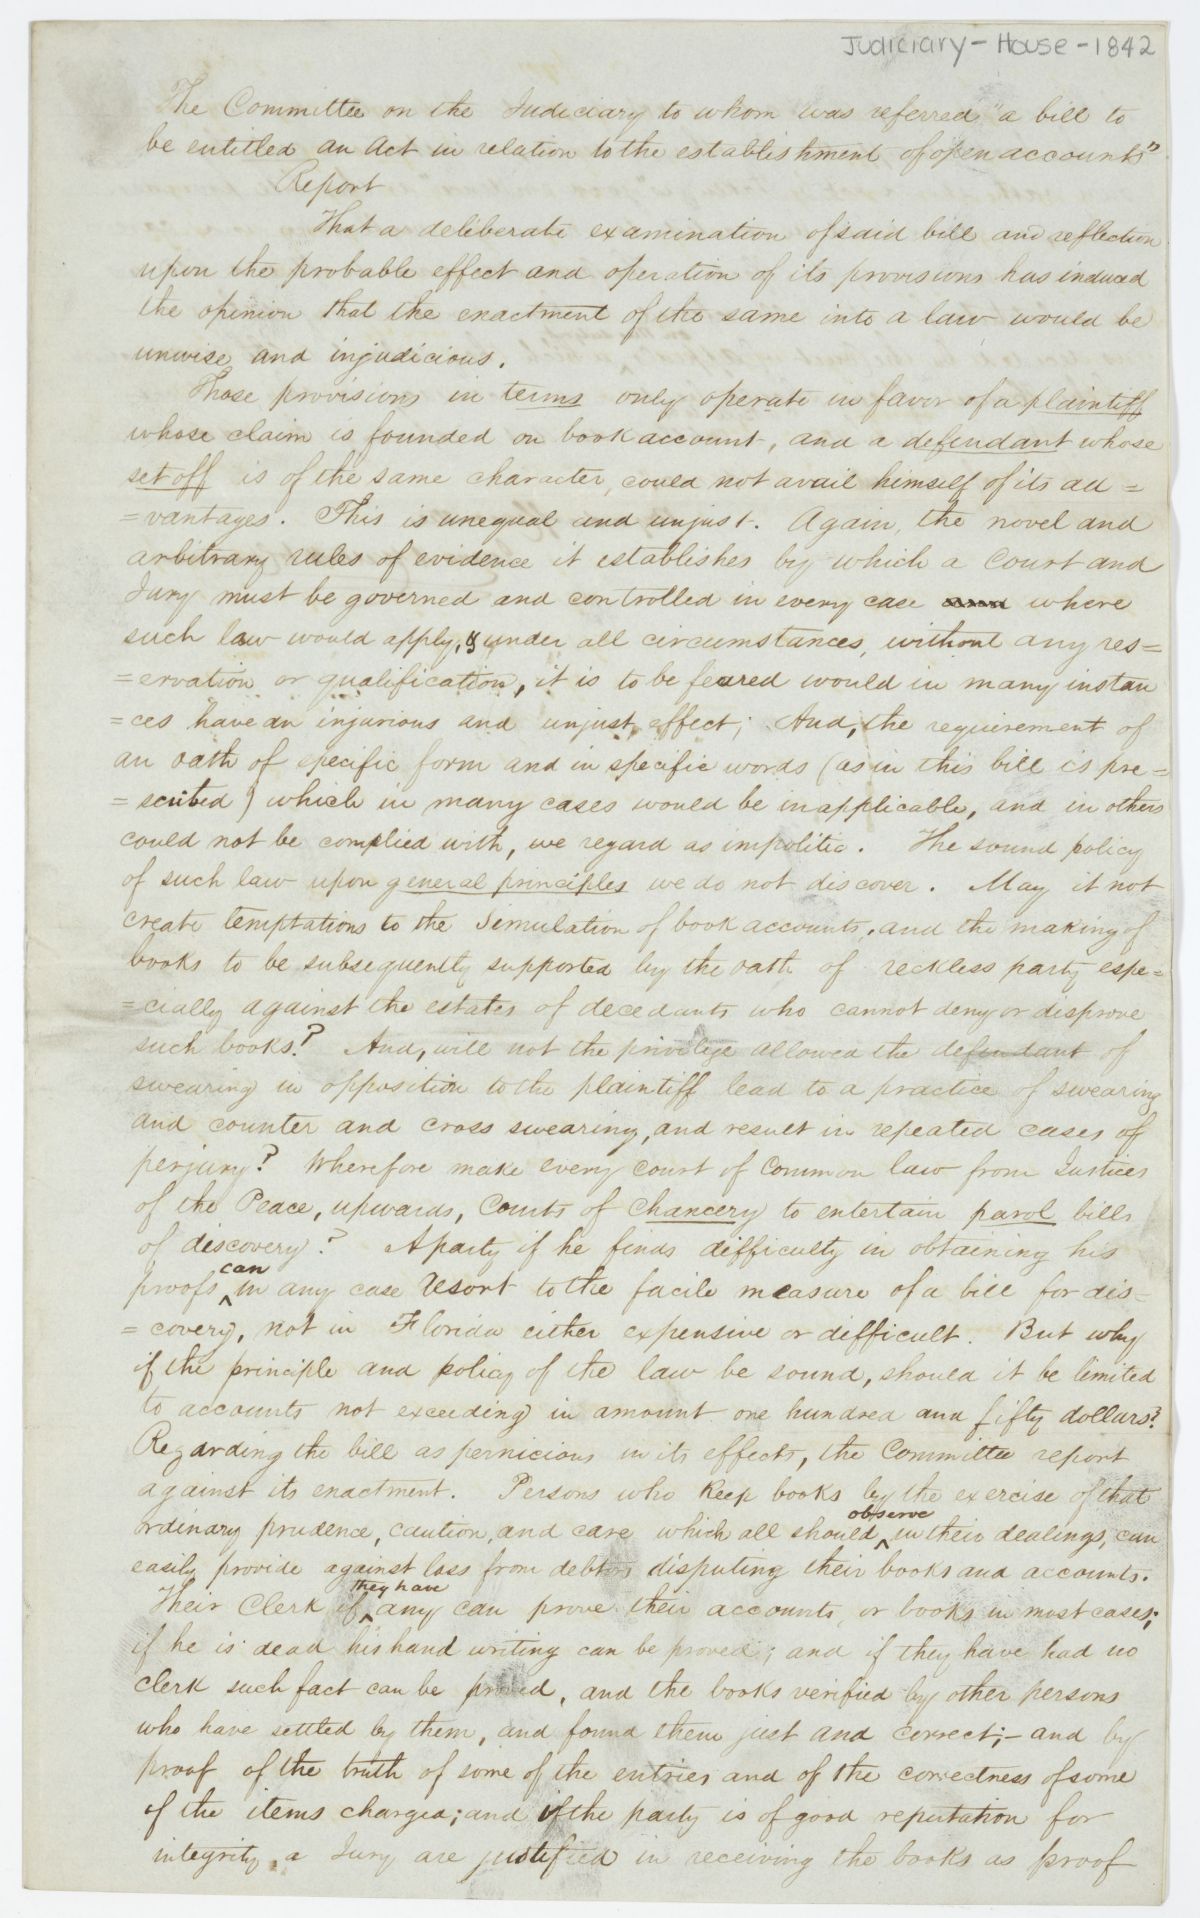 Judiciary - House - 1842
The Committee on the Judiciary to whom was referred "a bill to
be entitled an Act in relation to the establishment of open accounts"
Report
That a deliberate examination of said bill and reflection
upon the probable effect and operation of its provisions has induced
the opinion that the enactment of the same into a law would be
unwise and injudicious.
Those provisions in terms only operate in favor of a plaintiff
whose claim is founded on book account, and a defendant whose
set off is of the same character, could not avail himself of its ad=
=vantages. This is unequal and unjust. Again, the novel and
arbitrary rules of evidence it establishes by which a Court and
Jury must be governed and controlled in every case where
such law would apply, & under all circumstances, without any res=
=ervation or qualification, it is to be feared would in many instan
=ces have an injurious and unjust effect; And, the requirement of
an oath of specific form and in specific words (as in this bill is pre=
=scribed) which in many cases would be inapplicable, and in others
could not be complied with, we regard as impolitic. The sound policy
of such law upon general principles we do not discover. May it not
create temptations to the simulation of book accounts, and the making of
books to be subsequently supported by the oath of reckless party espe=
=cially against the estates of decedants who cannot deny or disprove
such books? And, will not the privilege allowed the defendant of
swearing in opposition to the plaintiff lead to a practice of swearing
and counter and cross swearing, and result in repeated cases of
perjury? Wherefore make every court of Common law from Justices
of the Peace, upwards, Courts of Chancery to entertain parol bills
of discovery? A party if he finds difficulty in obtaining his
proofs can in any case resort to the facile measure of a bill for dis=
=covery, not in Florida either expensive or difficult. But why
if the principle and policy of the law be sound, should it be limited
to accounts not exceeding in amount one hundred and fifty dollars?
Regarding the bill as pernicious in its effects, the Committee report
against its enactment. Persons who keep books by the exercise of that
ordinary prudence, caution, and care which all should observe in their dealings, can
easily provide against loss from debtors disputing their books and accounts.
Their Clerk if they have any can prove their accounts, or books in most cases;
if he is dead his hand writing can be proved; and if they have had no
clerk such fact can be proved, and the books verified by other persons
who have settled by them, and found them just and correct;- and by
proof of the truth of some of the entries and of the correctness of some
of the items charged; and if the party is of good reputation for
integrity, a Jury are justified in receiving the books as proof